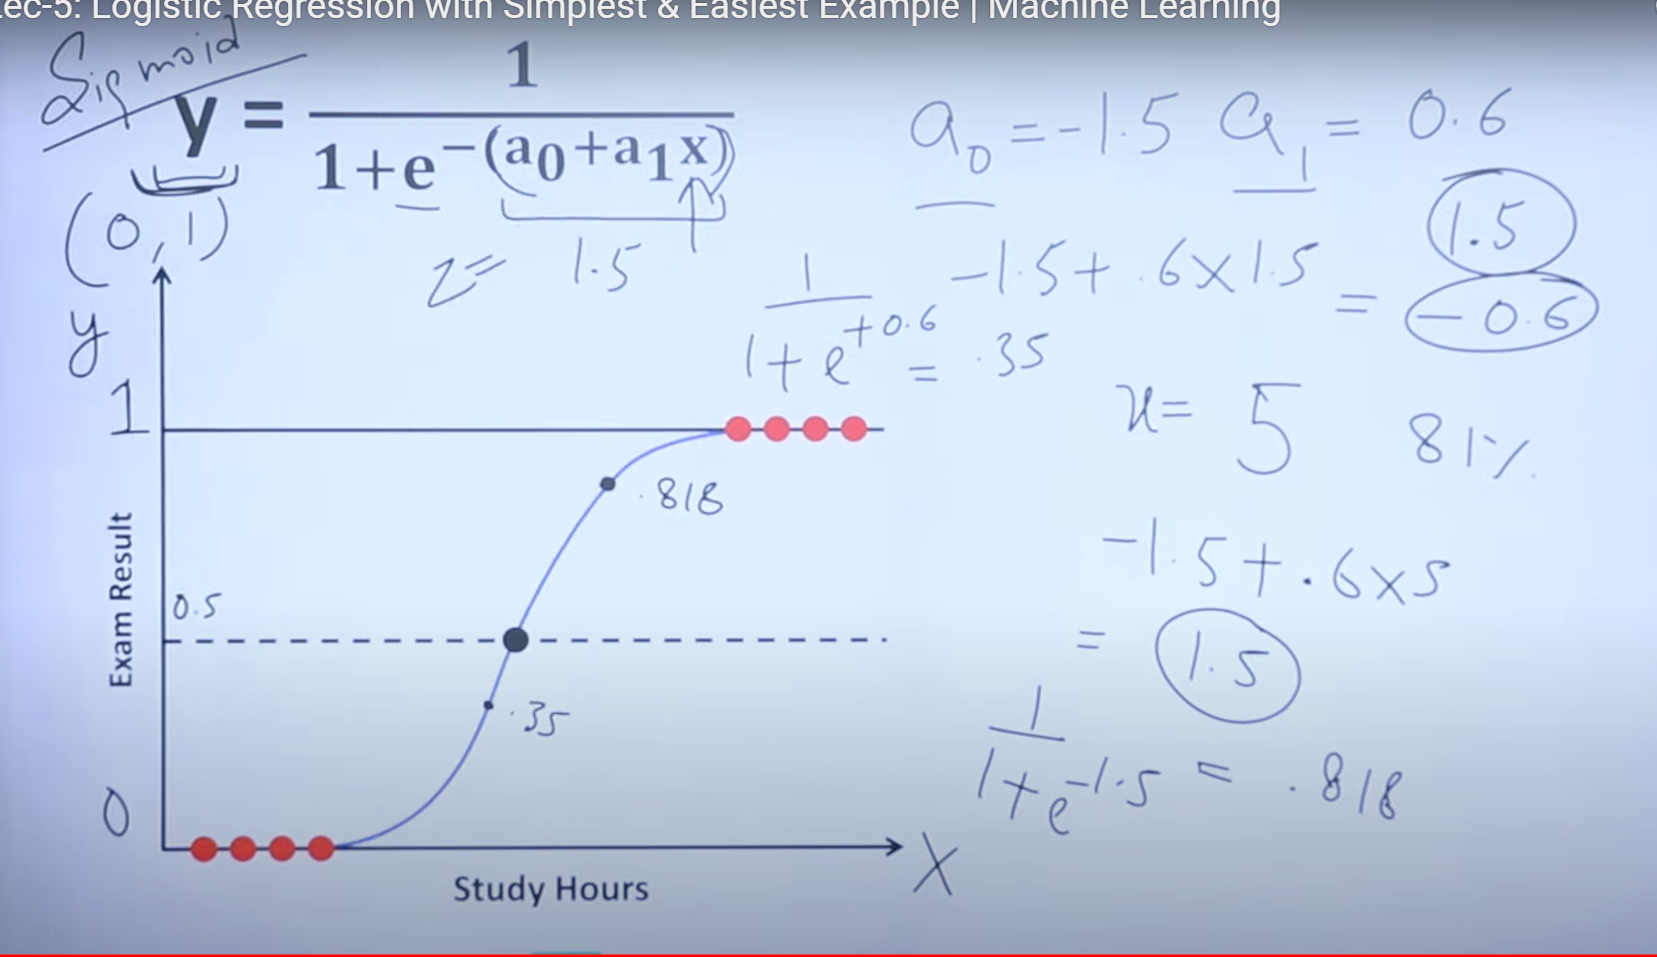 ec-5: Logistic Regression with Simplest & Easiest Example | Machine Learning
Sigmoid
y = 1 / 1+e^-(a0+a1x)
(0,1)
z = 1.5
a0 = -1.5 a1 = 0.6
1.5
-1.5 + .6 x 1.5 = -0.6
1 / 1+e^+0.6 = .35
x = 5 81%
-1.5 + .6 x 5
= 1.5
1 / 1+e^-1.5 = .818
y
1
.818
0.5
.35
0
Exam Result
Study Hours
X